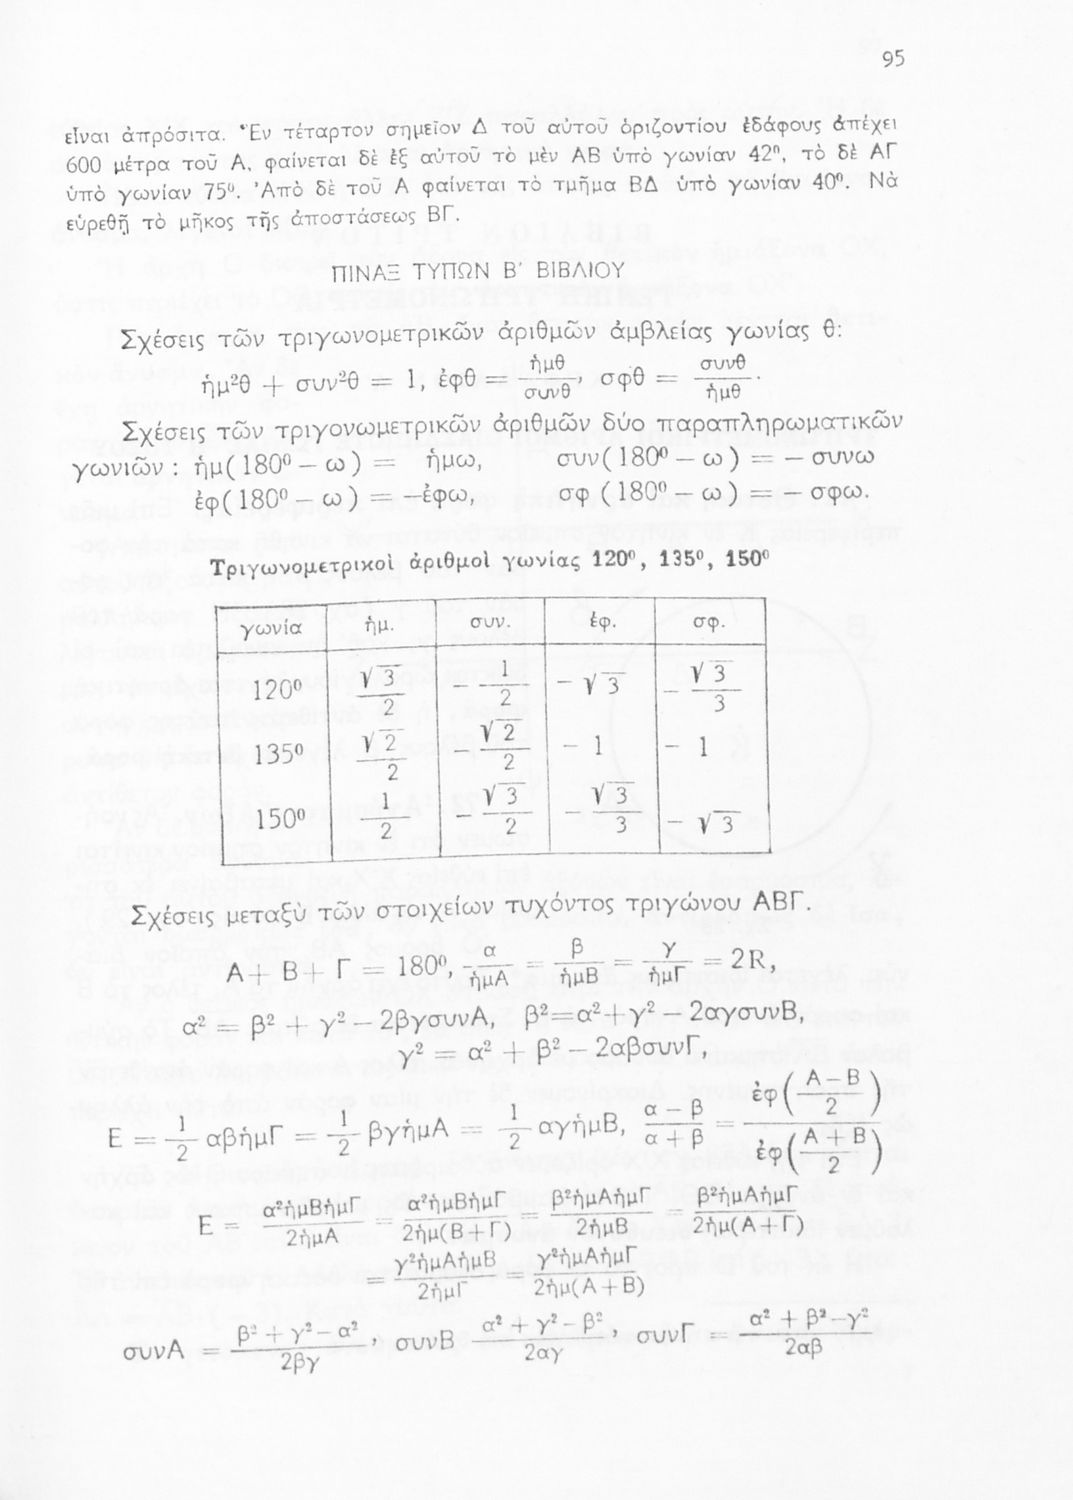 95
εἶναι ἀπρόσιτα. Ἓν τέταρτον σημεῖον Δ τοῦ αὐτοῦ ὁριζοντίου ἐδάφους ἀπέχει
600 μέτρα τοῦ Α, φαίνεται δὲ ἐξ αὐτοῦ τὸ μὲν ΑΒ ὑπὸ γωνίαν 42⁰, τὸ δὲ ΑΓ
ὑπὸ γωνίαν 75⁰. Ἀπὸ δὲ τοῦ Α φαίνεται τὸ τμῆμα ΒΔ ὑπὸ γωνίαν 40⁰. Νὰ
εὑρεθῇ τὸ μῆκος τῆς ἀποστάσεως ΒΓ.
ΠΙΝΑΞ ΤΥΠΩΝ Β′ ΒΙΒΛΙΟΥ
Σχέσεις τῶν τριγωνομετρικῶν ἀριθμῶν ἀμβλείας γωνίας θ:
ἡμ²θ + συν²θ = 1, ἐφθ = ἡμθ/συνθ, σφθ = συνθ/ἡμθ.
Σχέσεις τῶν τριγονωμετρικῶν ἀριθμῶν δύο παραπληρωματικῶν
γωνιῶν : ἡμ(180⁰ — ω) = ἡμω, συν(180⁰ — ω) = — συνω
ἐφ(180⁰ — ω) = —ἐφω, σφ (180⁰ — ω) = — σφω.
Τριγωνομετρικοὶ ἀριθμοὶ γωνίας 120⁰, 135⁰, 150⁰
γωνία ἡμ. συν. ἐφ. σφ.
120⁰ √3/2 — 1/2 — √3 — √3/3
135⁰ √2/2 — √2/2 — 1 — 1
150⁰ 1/2 — √3/2 — √3/3 — √3
Σχέσεις μεταξὺ τῶν στοιχείων τυχόντος τριγώνου ΑΒΓ.
Α + Β + Γ = 180⁰, α/ἡμΑ = β/ἡμΒ = γ/ἡμΓ = 2R,
α² = β² + γ² — 2βγσυνΑ, β²=α²+γ² — 2αγσυνΒ,
γ² = α² + β² — 2αβσυνΓ,
Ε = 1/2 αβἡμΓ = 1/2 βγἡμΑ = 1/2 αγἡμΒ, (α — β)/(α + β) = ἐφ((Α — Β)/2)/ἐφ((Α + Β)/2)
Ε = α²ἡμΒἡμΓ/2ἡμΑ = α²ἡμΒἡμΓ/2ἡμ(Β + Γ) = β²ἡμΑἡμΓ/2ἡμΒ = β²ἡμΑἡμΓ/2ἡμ(Α + Γ)
= γ²ἡμΑἡμΒ/2ἡμΓ = γ²ἡμΑἡμΓ/2ἡμ(Α + Β)
συνΑ = (β² + γ² — α²)/2βγ, συνΒ = (α² + γ² — β²)/2αγ, συνΓ = (α² + β² — γ²)/2αβ